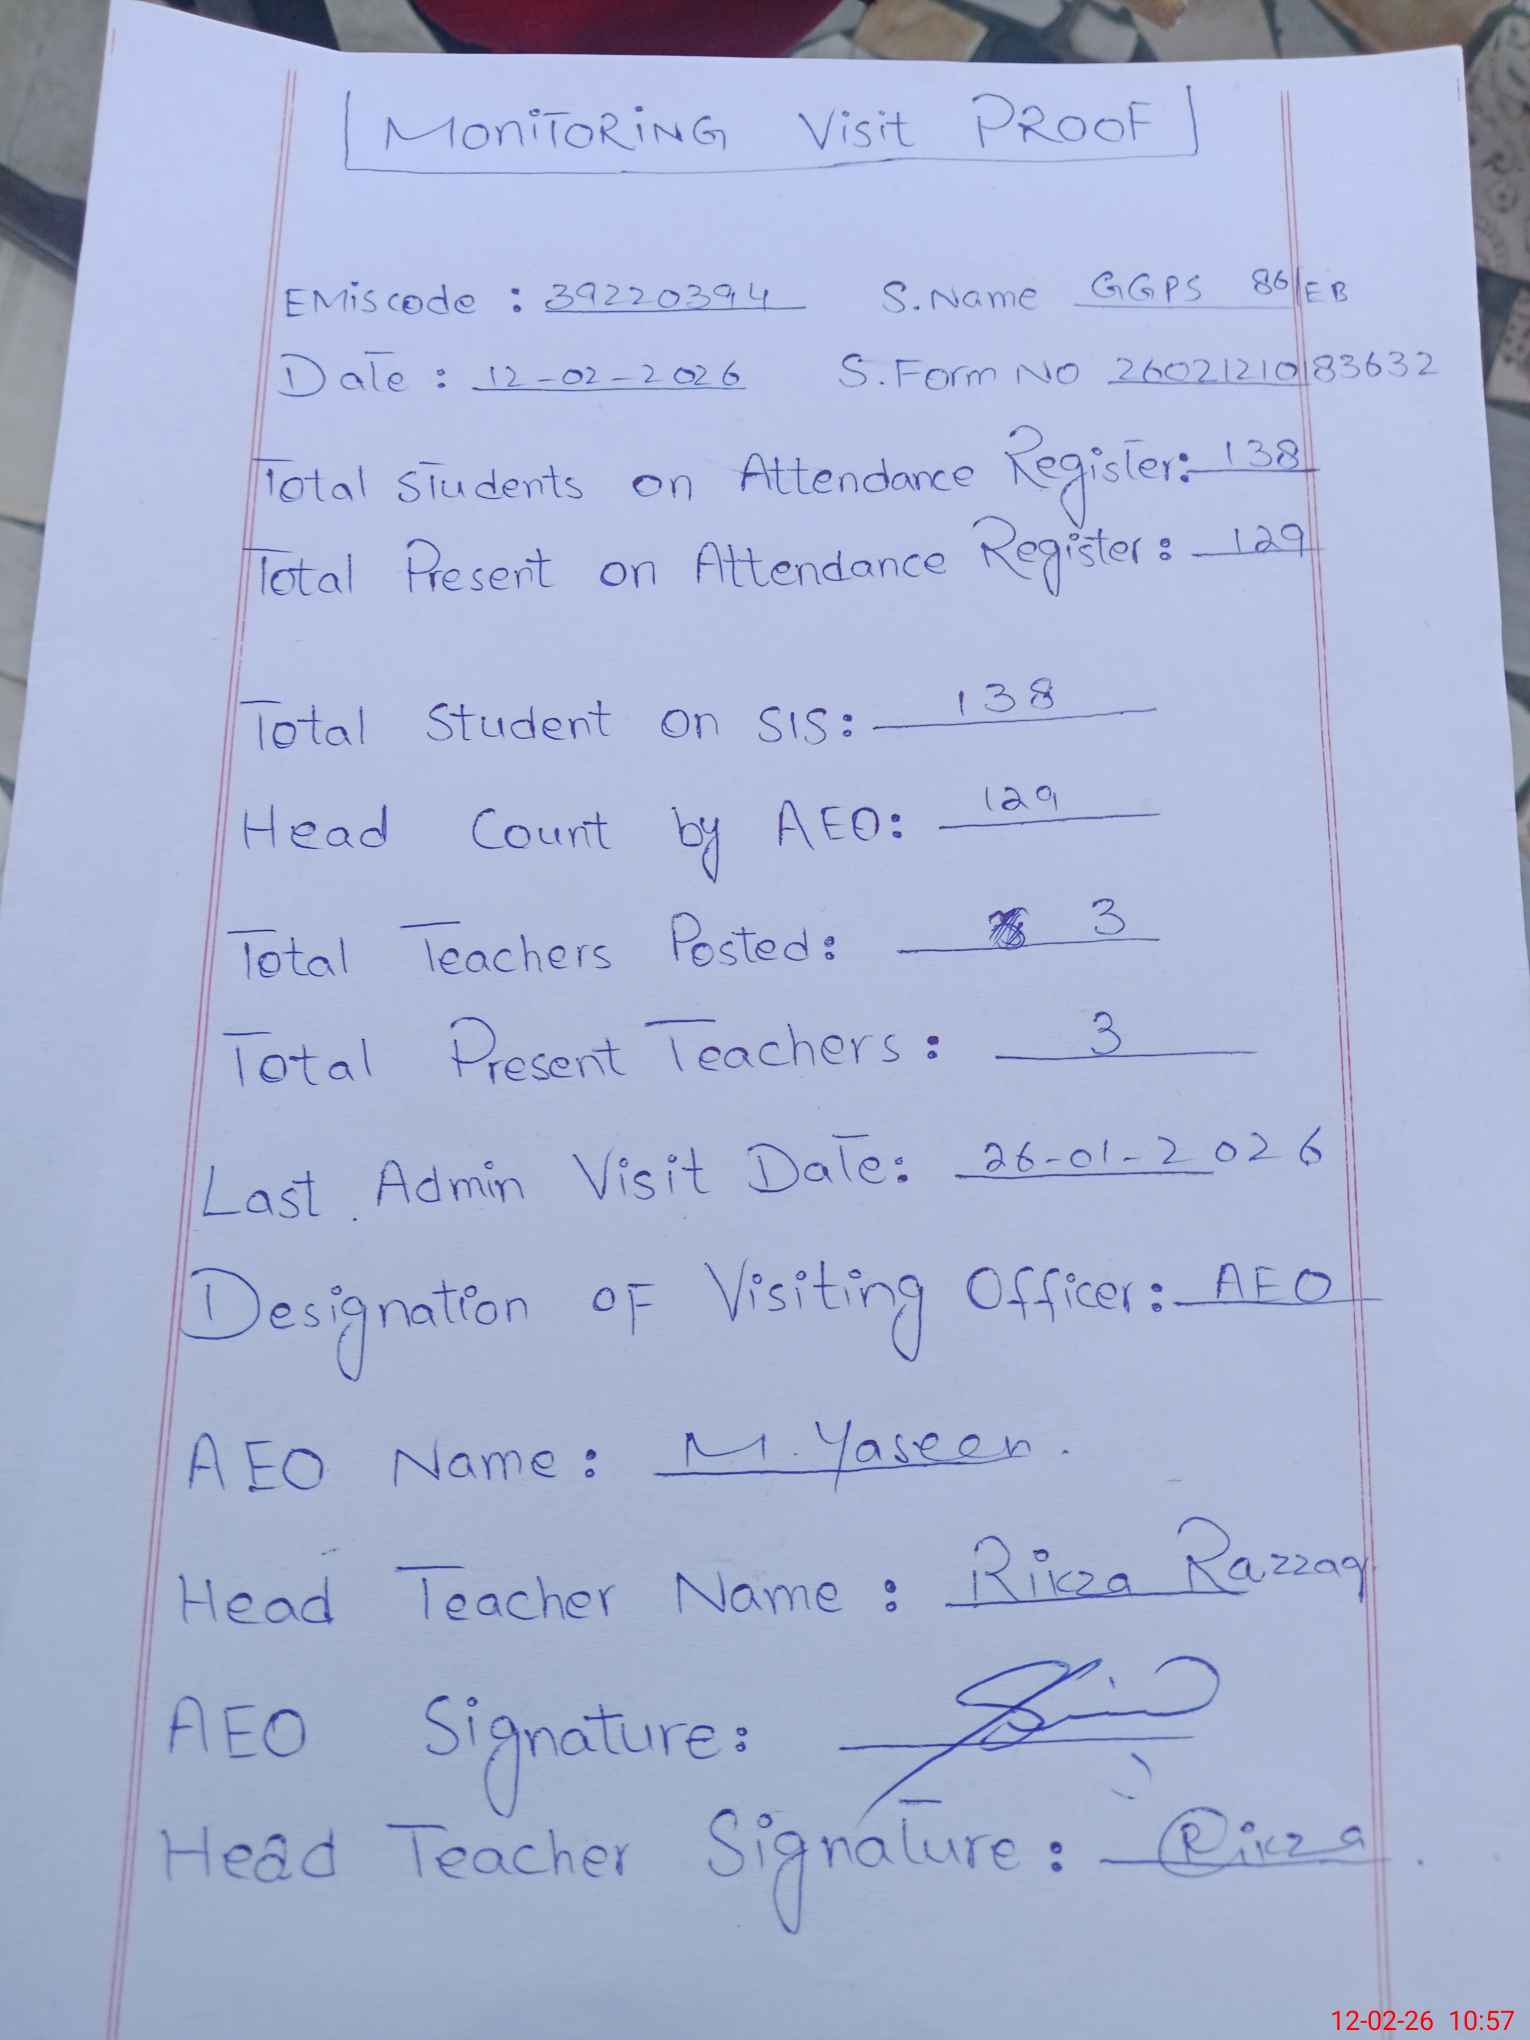 MONiTORiNG Visit PROOF
EMiscode : 39220394 S.Name GGPS 86/EB
Date : 12-02-2026 S.Form NO 26021210183632
Total Students on Attendance Register: 138
Total Present on Attendance Register: 129
Total Student on SIS: 138
Head Count by AEO: 129
Total Teachers Posted: 3
Total Present Teachers: 3
Last Admin Visit Date: 26-01-2026
Designation OF Visiting Officer: AEO
AEO Name: M. Yaseen.
Head Teacher Name : Rikza Razzaq
AEO Signature:
Head Teacher Signature: Rikza.
12-02-26 10:57